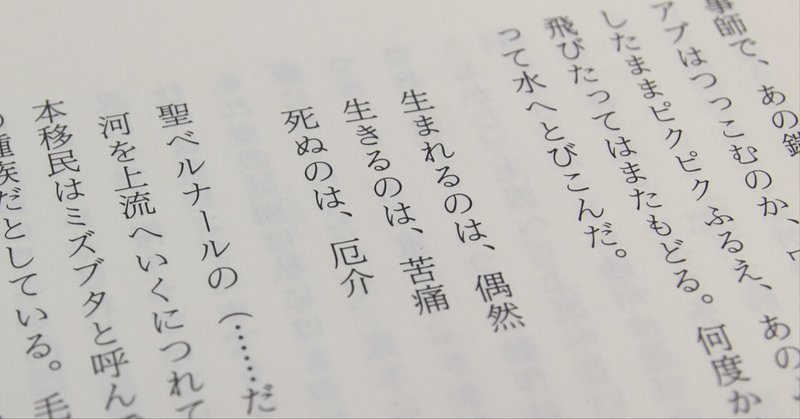 事師で、あの鋭
アブはつっこむのか、
したままピクピクふるえ、あの
飛びたってはまたもどる。何度か
って水へとびこんだ。
生まれるのは、偶然
生きるのは、苦痛
死ぬのは、厄介
聖ベルナールの（……だ
河を上流へいくにつれて
本移民はミズブタと呼ん
種族だとしている。毛